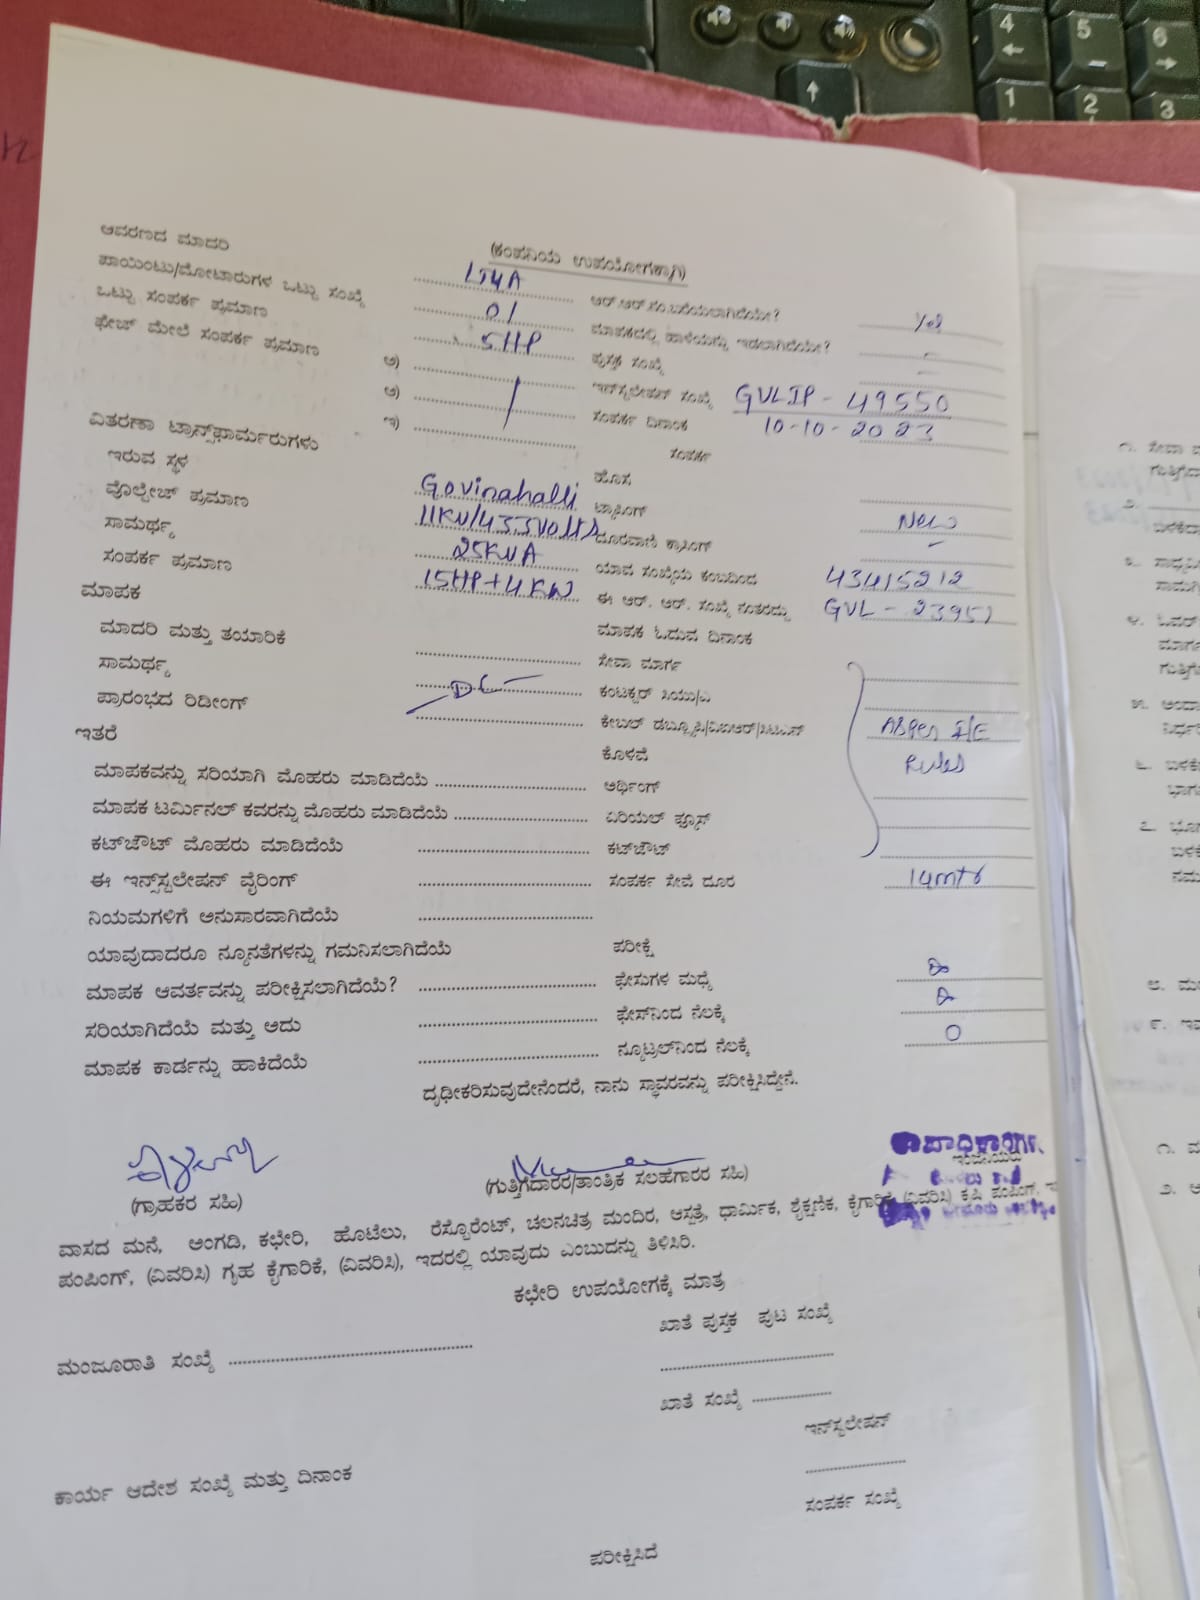 4 5 6
1 2 3
(ಕಂಪನಿಯ ಉಪಯೋಗಕ್ಕಾಗಿ)
ಆವರಣದ ಮಾದರಿ LT4A ಆರ್.ಆರ್.ಸಂ.ಬರೆಯಲಾಗಿದೆಯೇ? Yes
ಪಾಯಿಂಟು/ಮೋಟಾರುಗಳ ಒಟ್ಟು ಸಂಖ್ಯೆ 01 ಮಾಪಕದಲ್ಲಿ ಹಾಳೆಯನ್ನು ಇಡಲಾಗಿದೆಯೇ? -
ಒಟ್ಟು ಸಂಪರ್ಕ ಪ್ರಮಾಣ 5HP ಪುಸ್ತಕ ಸಂಖ್ಯೆ -
ಫೇಜ್ ಮೇಲೆ ಸಂಪರ್ಕ ಪ್ರಮಾಣ ಅ) ಇನ್‌ಸ್ಟಲೇಷನ್ ಸಂಖ್ಯೆ GVLIP - 49550
ಆ) ಸಂಪರ್ಕ ದಿನಾಂಕ 10-10-2023
ಇ) ಸಂಪರ್ಕ
ವಿತರಣಾ ಟ್ರಾನ್ಸ್‌ಫಾರ್ಮರುಗಳು
ಇರುವ ಸ್ಥಳ Govinahalli ಹೊಸ
ವೋಲ್ಟೇಜ್ ಪ್ರಮಾಣ 11KV/433Volts ಕ್ರಾಸಿಂಗ್ New
ಸಾಮರ್ಥ್ಯ 25KVA ದೂರವಾಣಿ ಕ್ರಾಸಿಂಗ್ -
ಸಂಪರ್ಕ ಪ್ರಮಾಣ 15HP+4KW ಯಾವ ಸಂಖ್ಯೆಯ ಕಂಬದಿಂದ 43415212
ಮಾಪಕ ಈ ಆರ್. ಆರ್. ಸಂಖ್ಯೆ ನಂತರದ್ದು GVL - 23951
ಮಾದರಿ ಮತ್ತು ತಯಾರಿಕೆ ಮಾಪಕ ಓದುವ ದಿನಾಂಕ
ಸಾಮರ್ಥ್ಯ DC ಸೇವಾ ಮಾರ್ಗ
ಪ್ರಾರಂಭದ ರಿಡೀಂಗ್ ಕಂಟಕ್ಟರ್ ಸಿಯು/ಎ
ಇತರೆ ಕೇಬಲ್ ಡಬ್ಲ್ಯೂಪಿ/ವಿಐಆರ್/ಸಿಟಿಎಸ್ As per I/E
ಮಾಪಕವನ್ನು ಸರಿಯಾಗಿ ಮೊಹರು ಮಾಡಿದೆಯೆ ಕೊಳವೆ Rules
ಮಾಪಕ ಟರ್ಮಿನಲ್ ಕವರನ್ನು ಮೊಹರು ಮಾಡಿದೆಯೆ ಅರ್ಥಿಂಗ್
ಕಟ್‌ಔಟ್ ಮೊಹರು ಮಾಡಿದೆಯೆ ಏರಿಯಲ್ ಫ್ಯೂಸ್
ಕಟ್‌ಔಟ್
ಈ ಇನ್ಸ್‌ಸ್ಟಲೇಷನ್ ವೈರಿಂಗ್ ಸಂಪರ್ಕ ಸೇವೆ ದೂರ 14mts
ನಿಯಮಗಳಿಗೆ ಅನುಸಾರವಾಗಿದೆಯೆ
ಯಾವುದಾದರೂ ನ್ಯೂನತೆಗಳನ್ನು ಗಮನಿಸಲಾಗಿದೆಯೆ ಪರೀಕ್ಷೆ
ಮಾಪಕ ಆವರ್ತವನ್ನು ಪರೀಕ್ಷಿಸಲಾಗಿದೆಯೆ? ಫೇಸುಗಳ ಮಧ್ಯೆ
ಸರಿಯಾಗಿದೆಯೆ ಮತ್ತು ಅದು ಫೇಸ್‌ನಿಂದ ನೆಲಕ್ಕೆ
ಮಾಪಕ ಕಾರ್ಡನ್ನು ಹಾಕಿದೆಯೆ ನ್ಯೂಟ್ರಲ್‌ನಿಂದ ನೆಲಕ್ಕೆ 0
ದೃಢೀಕರಿಸುವುದೇನೆಂದರೆ, ನಾನು ಸ್ಥಾವರವನ್ನು ಪರೀಕ್ಷಿಸಿದ್ದೇನೆ.
(ಗ್ರಾಹಕರ ಸಹಿ) (ಗುತ್ತಿಗೆದಾರರ/ತಾಂತ್ರಿಕ ಸಲಹೆಗಾರರ ಸಹಿ)
ವಾಸದ ಮನೆ, ಅಂಗಡಿ, ಕಛೇರಿ, ಹೊಟೆಲು, ರೆಸ್ಟೊರೆಂಟ್, ಚಲನಚಿತ್ರ ಮಂದಿರ, ಆಸ್ಪತ್ರೆ, ಧಾರ್ಮಿಕ, ಶೈಕ್ಷಣಿಕ, ಕೈಗಾರಿಕೆ (ವಿವರಿಸಿ) ಕೃಷಿ ಪಂಪಿಂಗ್,
ಪಂಪಿಂಗ್, (ವಿವರಿಸಿ) ಗೃಹ ಕೈಗಾರಿಕೆ, (ವಿವರಿಸಿ), ಇದರಲ್ಲಿ ಯಾವುದು ಎಂಬುದನ್ನು ತಿಳಿಸಿರಿ.
ಕಛೇರಿ ಉಪಯೋಗಕ್ಕೆ ಮಾತ್ರ
ಖಾತೆ ಪುಸ್ತಕ ಪುಟ ಸಂಖ್ಯೆ
ಮಂಜೂರಾತಿ ಸಂಖ್ಯೆ
ಖಾತೆ ಸಂಖ್ಯೆ
ಇನ್‌ಸ್ಟಲೇಷನ್
ಕಾರ್ಯ ಆದೇಶ ಸಂಖ್ಯೆ ಮತ್ತು ದಿನಾಂಕ
ಸಂಪರ್ಕ ಸಂಖ್ಯೆ
ಪರೀಕ್ಷಿಸಿದೆ